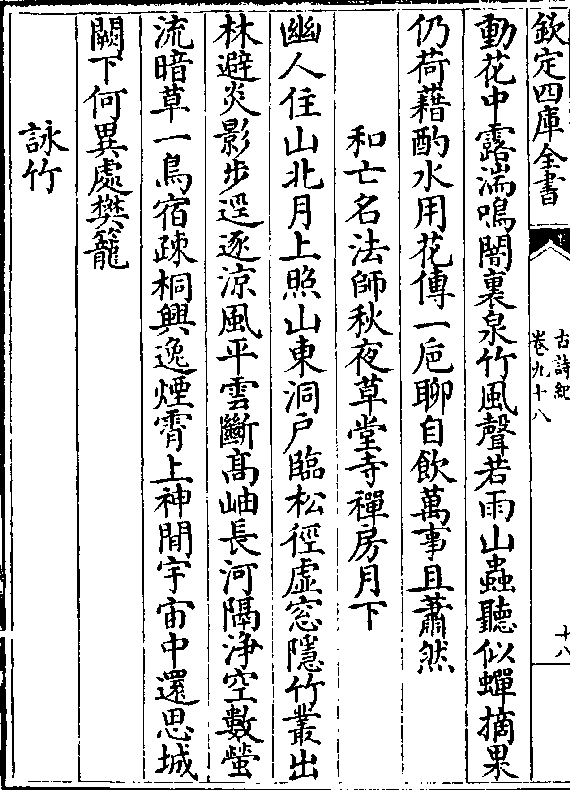 欽定四庫全書
古詩紀
卷九十八
十八
動花中露湍鳴闇裏泉竹風聲若雨山蟲聽似蟬摘果
仍荷藉酌水用花傳一巵聊自飲萬事且蕭然
和亡名法師秋夜草堂寺禪房月下
幽人住山北月上照山東洞户臨松徑虛窓隱竹叢出
林避炎影步逕逐涼風平雲斷髙岫長河隔浄空數螢
流暗草一鳥宿疎桐興逸煙霄上神閒宇宙中還思城
闕下何異處樊籠
詠竹